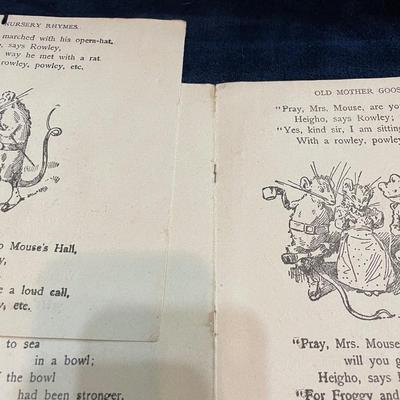 NURSERY RHYMES.
marched with his opera-hat,
, says Rowley,
way he met with a rat
rowley, powley, etc.
o Mouse's Hall,
y,
e a loud call,
y, etc.
to sea
in a bowl;
the bowl
had been stronger,
OLD MOTHER GOOS
"Pray, Mrs. Mouse, are you
Heigho, says Rowley;
"Yes, kind sir, I am sitting
With a rowley, powley
"Pray, Mrs. Mouse
will you g
Heigho, says R
"For Froggy and